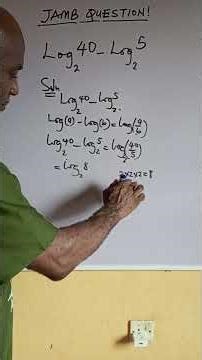 JAMB QUESTION!
Log₂40 - Log₂5
Soln
Log₂40 - Log₂5.
Log(a) - Log(b) = Log(a/b)
Log₂40 - Log₂5 = Log₂(40/5)
= Log₂8
2x2x2=8